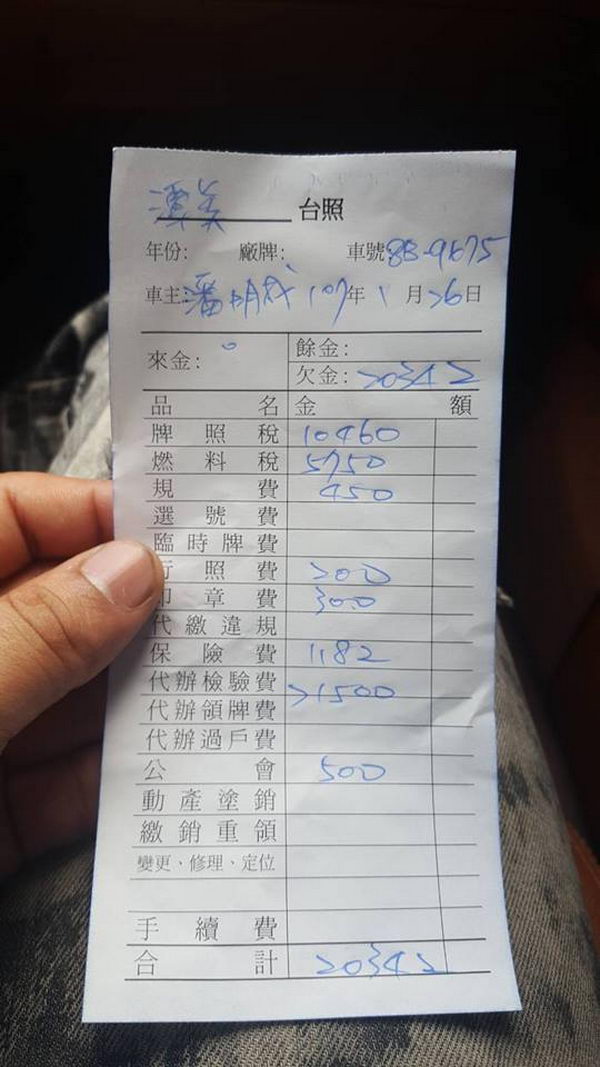 台照
年份: 廠牌: 車號:8B-9675
車主:潘明成 107年 1月 26日
來金: 0
餘金:
欠金: 20342
品名 金額
牌照稅 10460
燃料稅 5750
規費 450
選號費
臨時牌費
行照費 200
印章費 300
代繳違規
保險費 1182
代辦檢驗費 >1500
代辦領牌費
代辦過戶費
公會 500
動產塗銷
繳銷重領
變更、修理、定位
手續費
合計 20342